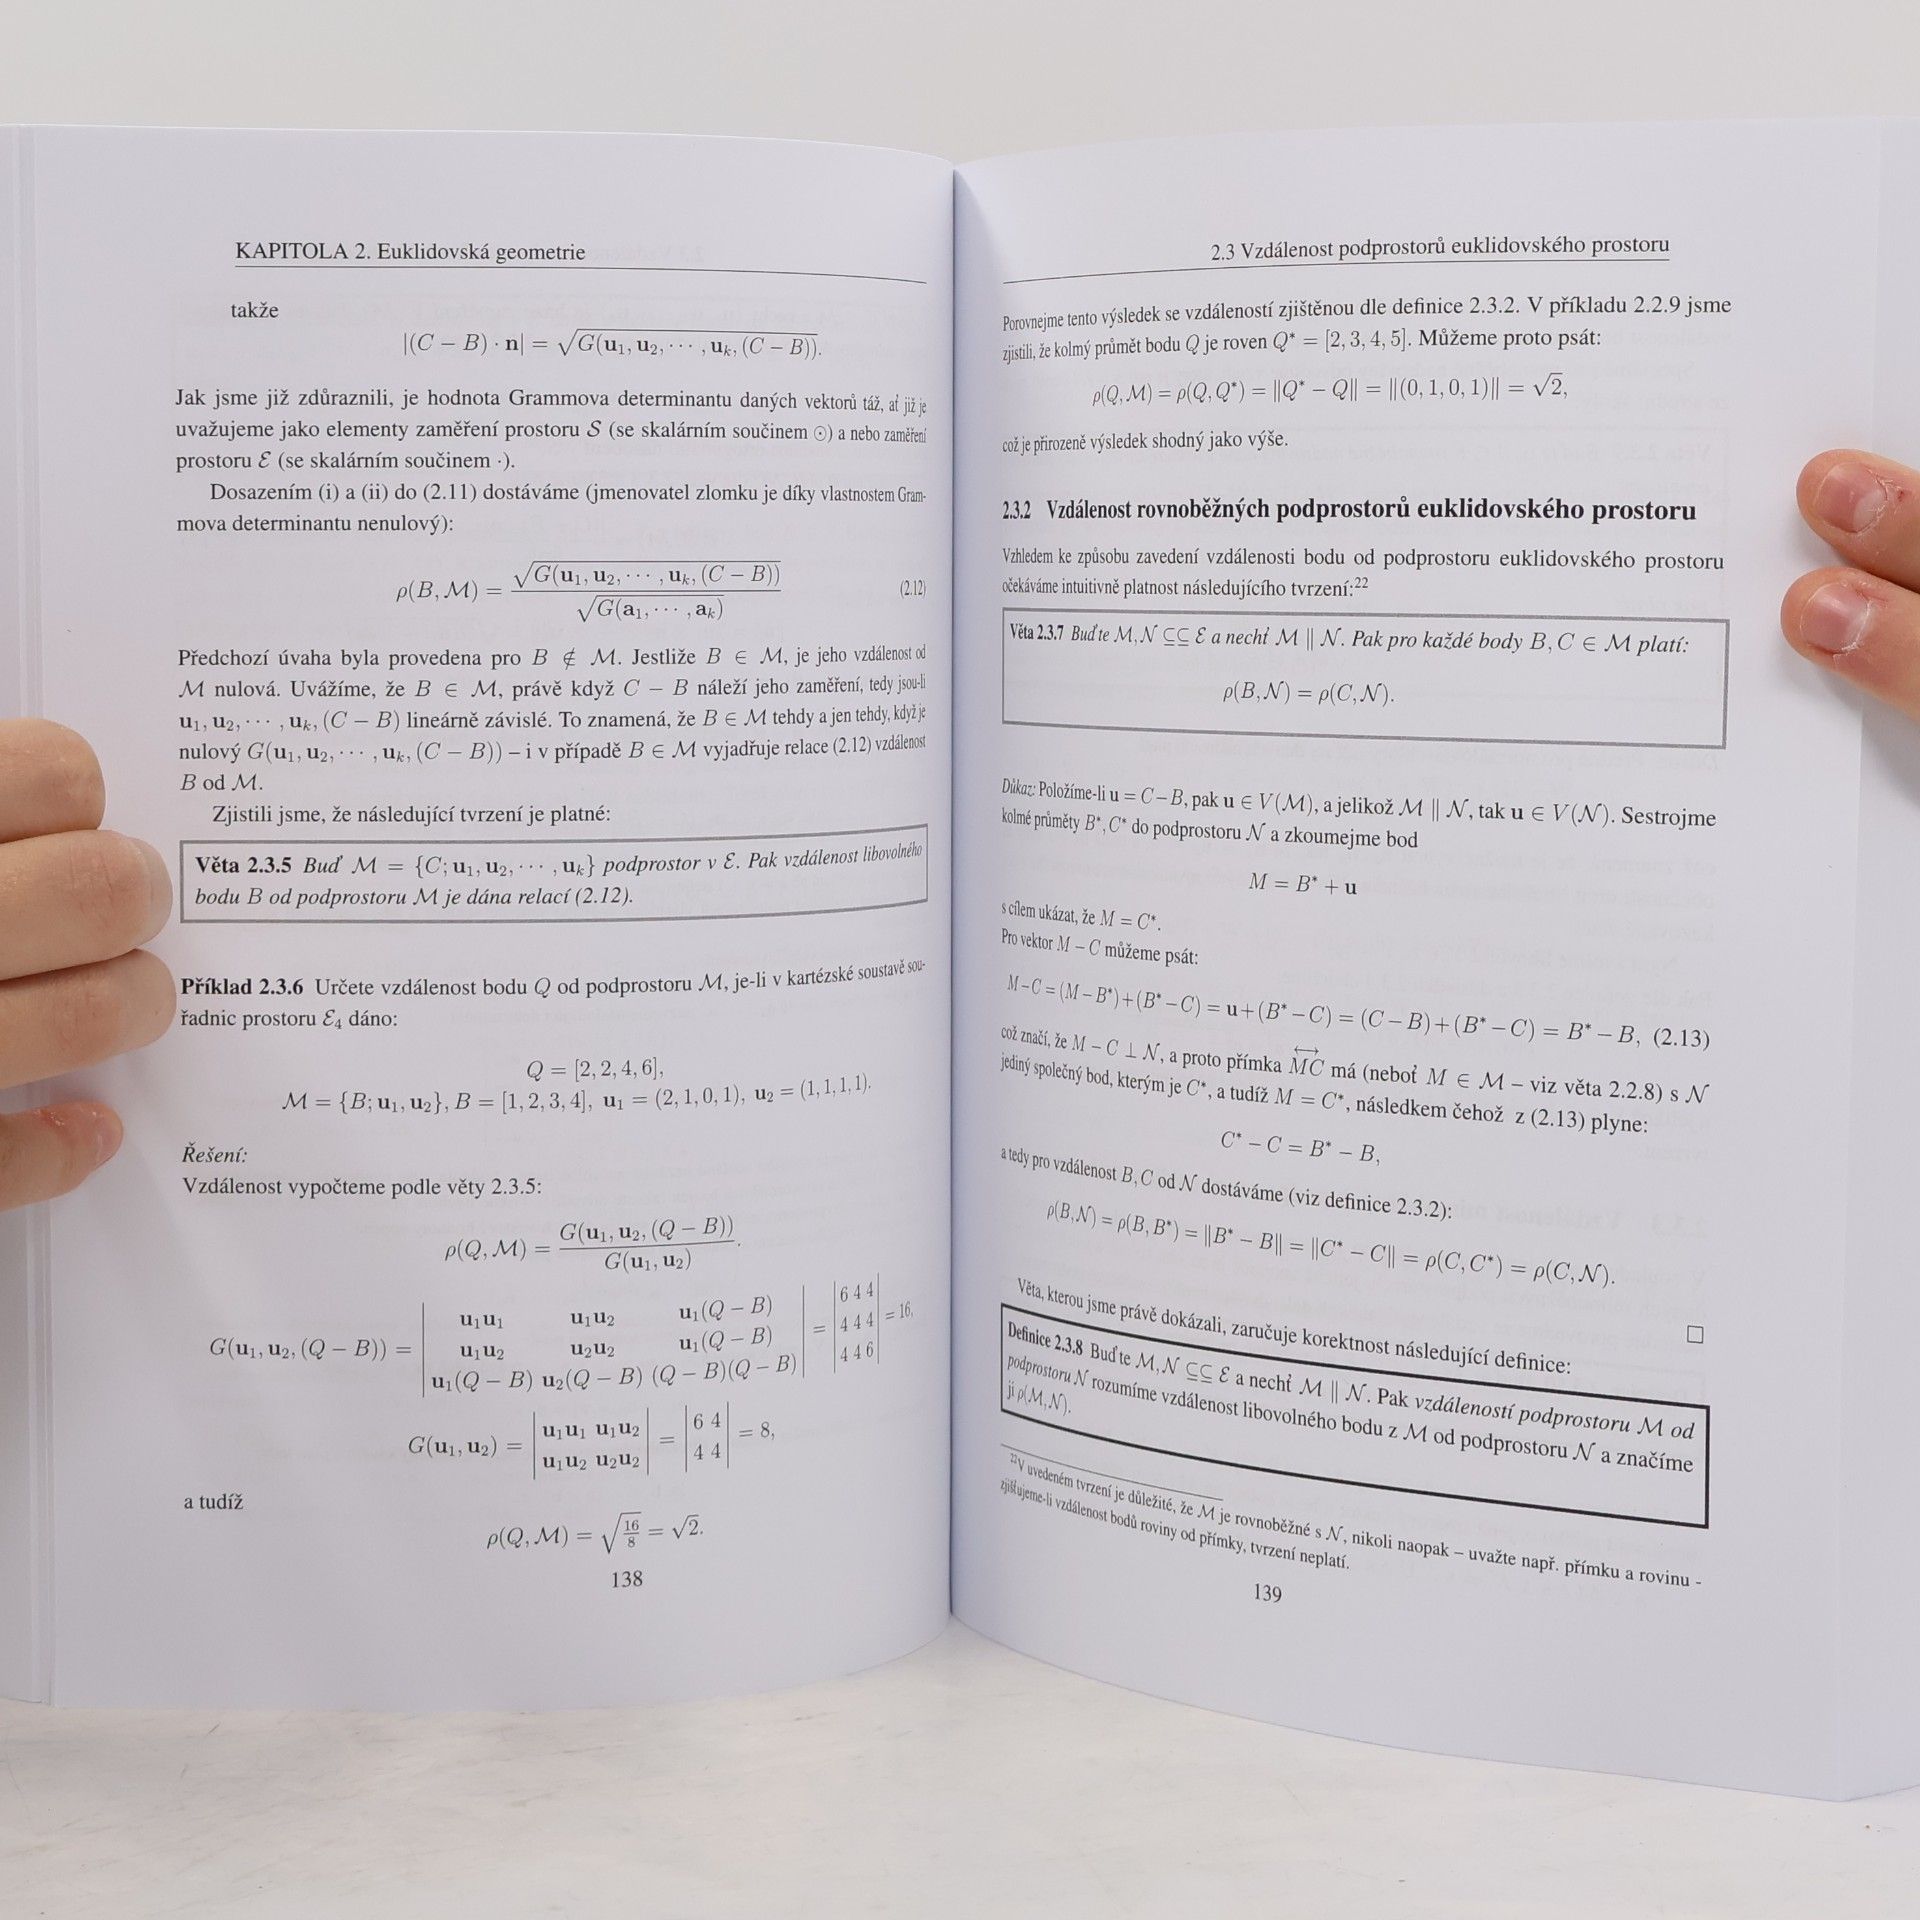 KAPITOLA 2. Euklidovská geometrie
takže
|(C − B) · n| = √G(u₁, u₂, ··· , uₖ, (C − B)).
Jak jsme již zdůraznili, je hodnota Grammova determinantu daných vektorů táž, ať již je
uvažujeme jako elementy zaměření prostoru S (se skalárním součinem ⊙) a nebo zaměření
prostoru ℰ (se skalárním součinem ·).
Dosazením (i) a (ii) do (2.11) dostáváme (jmenovatel zlomku je díky vlastnostem Gram-
mova determinantu nenulový):
ρ(B, ℳ) = √G(u₁, u₂, ··· , uₖ, (C − B)) / √G(a₁, ··· , aₖ) (2.12)
Předchozí úvaha byla provedena pro B ∉ ℳ. Jestliže B ∈ ℳ, je jeho vzdálenost od
ℳ nulová. Uvážíme, že B ∈ ℳ, právě když C − B náleží jeho zaměření, tedy jsou-li
u₁, u₂, ··· , uₖ, (C − B) lineárně závislé. To znamená, že B ∈ ℳ tehdy a jen tehdy, když je
nulový G(u₁, u₂, ··· , uₖ, (C − B)) – i v případě B ∈ ℳ vyjadřuje relace (2.12) vzdálenost
B od ℳ.
Zjistili jsme, že následující tvrzení je platné:
Věta 2.3.5 Buď ℳ = {C; u₁, u₂, ··· , uₖ} podprostor v ℰ. Pak vzdálenost libovolného
bodu B od podprostoru ℳ je dána relací (2.12).
Příklad 2.3.6 Určete vzdálenost bodu Q od podprostoru ℳ, je-li v kartézské soustavě sou-
řadnic prostoru ℰ₄ dáno:
Q = [2, 2, 4, 6],
ℳ = {B; u₁, u₂}, B = [1, 2, 3, 4], u₁ = (2, 1, 0, 1), u₂ = (1, 1, 1, 1).
Řešení:
Vzdálenost vypočteme podle věty 2.3.5:
ρ(Q, ℳ) = G(u₁, u₂, (Q − B)) / G(u₁, u₂).
G(u₁, u₂, (Q − B)) = | u₁u₁ u₁u₂ u₁(Q − B) | = | 6 4 4 | = 16,
| u₁u₂ u₂u₂ u₁(Q − B) | | 4 4 4 |
| u₁(Q − B) u₂(Q − B) (Q − B)(Q − B) | | 4 4 6 |
G(u₁, u₂) = | u₁u₁ u₁u₂ | = | 6 4 | = 8,
| u₁u₂ u₂u₂ | | 4 4 |
a tudíž
ρ(Q, ℳ) = √(16/8) = √2.
138
2.3 Vzdálenost podprostorů euklidovského prostoru
Porovnejme tento výsledek se vzdáleností zjištěnou dle definice 2.3.2. V příkladu 2.2.9 jsme
zjistili, že kolmý průmět bodu Q je roven Q* = [2, 3, 4, 5]. Můžeme proto psát:
ρ(Q, ℳ) = ρ(Q, Q*) = ‖Q* − Q‖ = ‖(0, 1, 0, 1)‖ = √2,
což je přirozeně výsledek shodný jako výše.
2.3.2 Vzdálenost rovnoběžných podprostorů euklidovského prostoru
Vzhledem ke způsobu zavedení vzdálenosti bodu od podprostoru euklidovského prostoru
očekáváme intuitivně platnost následujícího tvrzení:²²
Věta 2.3.7 Buďte ℳ, 𝒩 ⊆⊆ ℰ a nechť ℳ ∥ 𝒩. Pak pro každé body B, C ∈ ℳ platí:
ρ(B, 𝒩) = ρ(C, 𝒩).
Důkaz: Položíme-li u = C − B, pak u ∈ V(ℳ), a jelikož ℳ ∥ 𝒩, tak u ∈ V(𝒩). Sestrojme
kolmé průměty B*, C* do podprostoru 𝒩 a zkoumejme bod
M = B* + u
s cílem ukázat, že M = C*.
Pro vektor M − C můžeme psát:
M − C = (M − B*) + (B* − C) = u + (B* − C) = (C − B) + (B* − C) = B* − B, (2.13)
což značí, že M − C ⊥ 𝒩, a proto přímka ↔MC má (neboť M ∈ ℳ – viz věta 2.2.8) s 𝒩
jediný společný bod, kterým je C*, a tudíž M = C*, následkem čehož z (2.13) plyne:
C* − C = B* − B,
a tedy pro vzdálenost B, C od 𝒩 dostáváme (viz definice 2.3.2):
ρ(B, 𝒩) = ρ(B, B*) = ‖B* − B‖ = ‖C* − C‖ = ρ(C, C*) = ρ(C, 𝒩).
□
Věta, kterou jsme právě dokázali, zaručuje korektnost následující definice:
Definice 2.3.8 Buďte ℳ, 𝒩 ⊆⊆ ℰ a nechť ℳ ∥ 𝒩. Pak vzdáleností podprostoru ℳ od
podprostoru 𝒩 rozumíme vzdálenost libovolného bodu z ℳ od podprostoru 𝒩 a značíme
ji ρ(ℳ, 𝒩).
²²V uvedeném tvrzení je důležité, že ℳ je rovnoběžné s 𝒩, nikoli naopak – uvažte např. přímku a rovinu -
zjišťujeme-li vzdálenost bodů roviny od přímky, tvrzení neplatí.
139